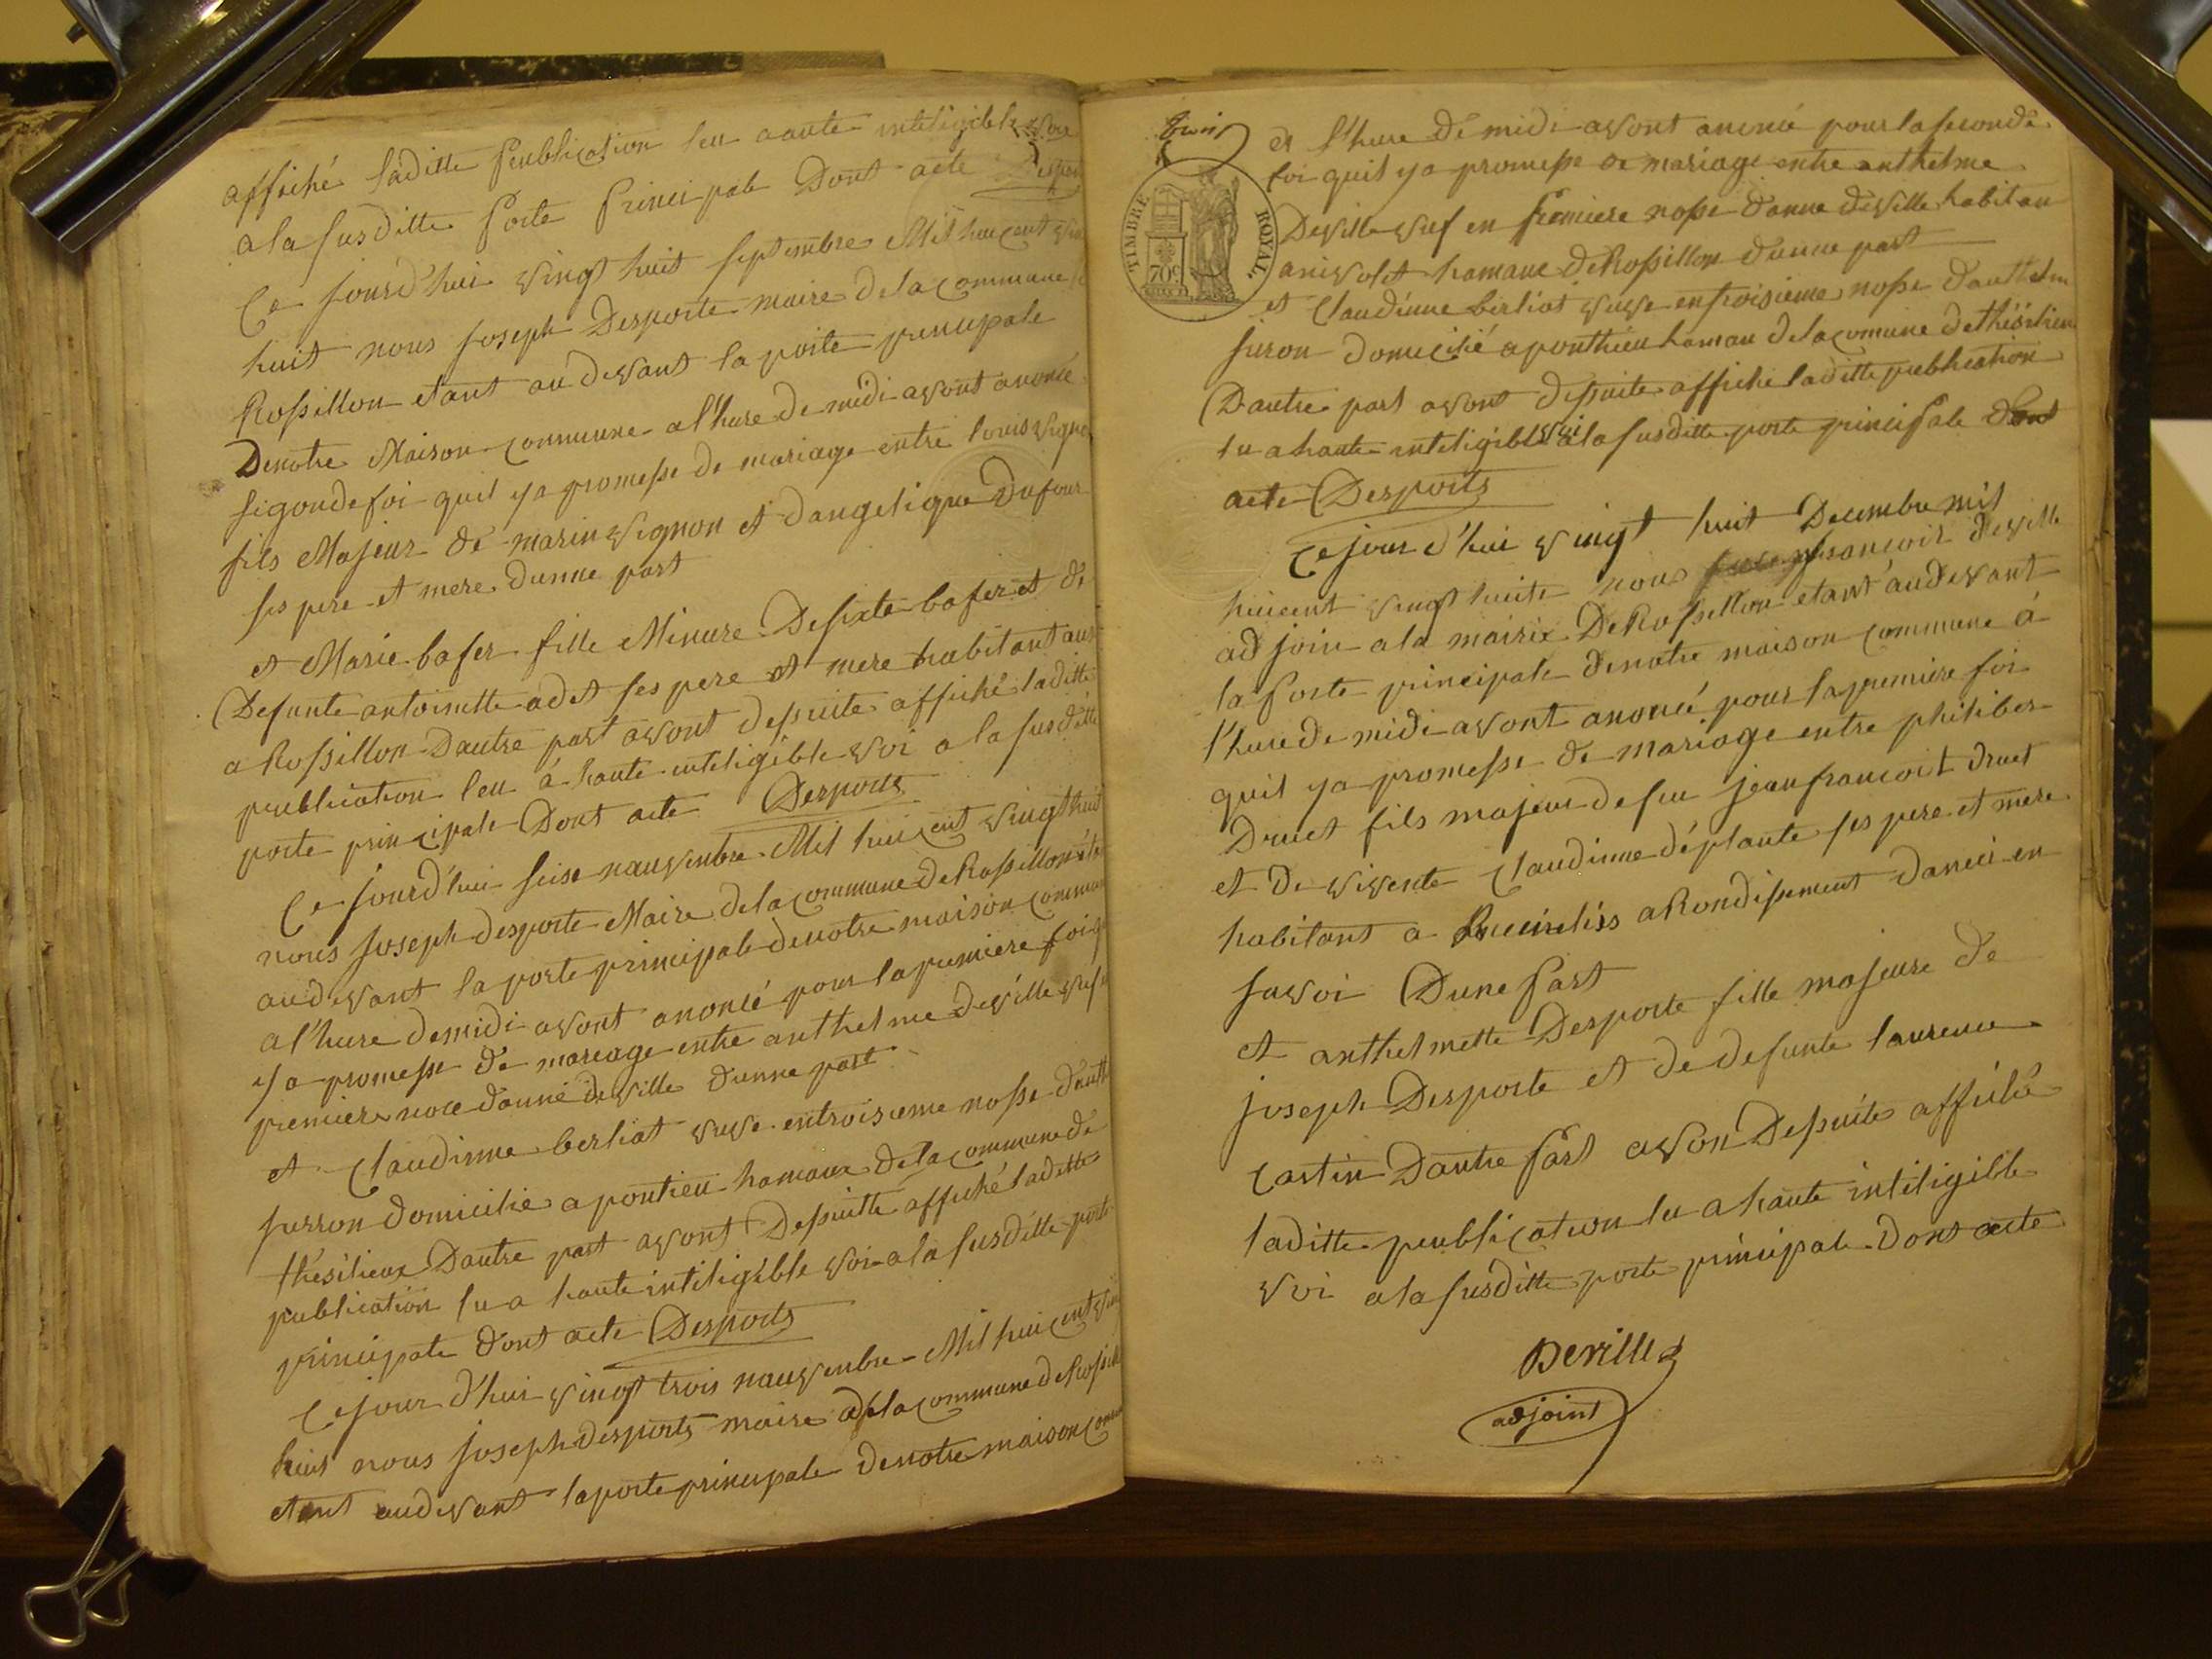 affiché laditte publication leu aaute inteligible voie
a la susditte porte principale Dont acte Desport
Ce jourd'hui vingt huit septembre Mil huicent vin
huit nous joseph Desporte maire de la commune
Rossillon etant au devant la porte principale
Denotre Maison commune a l'hure de midi avont anoncé
segonde foi quil ya promesse de mariage entre louis vigno
fils Majeur de marin vignon et dangelique Dufour
ses pere et mere dunne part
et Marie bafer fille Minure De sixte bafer et de
Defunte antoinette adet ses pere et mere habitant au
a Rossillon Dautre part avont dessuite affiché laditte
publication leu à haute inteligible voi a la susditte
porte principale Dont acte Desports
Ce jourd'hui seise nauvenbre Mil huicent vingt huit
nous joseph desporte Maire de la commune de Rossillon éta
audevant la porte principale denotre maison commun
a l'hure demidi avont anoncé pour la premiere foi q
ya promesse de mareage entre anthelme deville vuf
premiere noce danne deville dunne part
et Claudinne berliat veuve entroisieme nosse d'anth
jurron domicilie a pontieu hamaux de la commune de
thésilieux Dautre part avont Dessuitte affiché laditte
publication lu a haute inteligible voi a la susditte porte
principale dont acte Desports
Ce jour d'hui vingt trois nauvenbre Mil huicent vin
huit nous joseph desports maire de la commune de Rossill
etant audevant la porte principale denotre maison comm
trois
TIMBRE ROYAL
70c
et l'hure de midi avont anoncé pour la seconde
foi quil ya promesse de mariage entre anthelme
Deville vuf en premiere nosse danne deville habitan
anivolet hamaux de Rossillon dunne part
et Claudinne berliat veuve entroisieme nosse danthelm
juron domicilié a ponthieu hamau de la comune de thésilieu
Dautre part avont dessuite affiché laditte publication
lu a haute inteligible voi a la susditte porte principale dont
acte Desports
Ce jour d'hui vingt huit Decembre mil
huicent vingt huite nous françois deville
adjoin a la mairie De Rossillon etant audevant
la porte principale denotre maison commune à
l'hure de midi avont anoncé pour la premiere foi
quil ya promesse de mariage entre philiber
Druet fils majeur de feu jean francoit druet
et de vivente Claudinne déplante ses pere et mere
habitant a arondissement daneci en
savoi Dune part
et anthelmette Desporte fille majeure de
joseph Desporte et de defunte laurence
Castin Dautre part avon Dessuite affiché
laditte publication lu a haute inteligible
voi a la susditte porte principale dont acte
Deville
adjoint